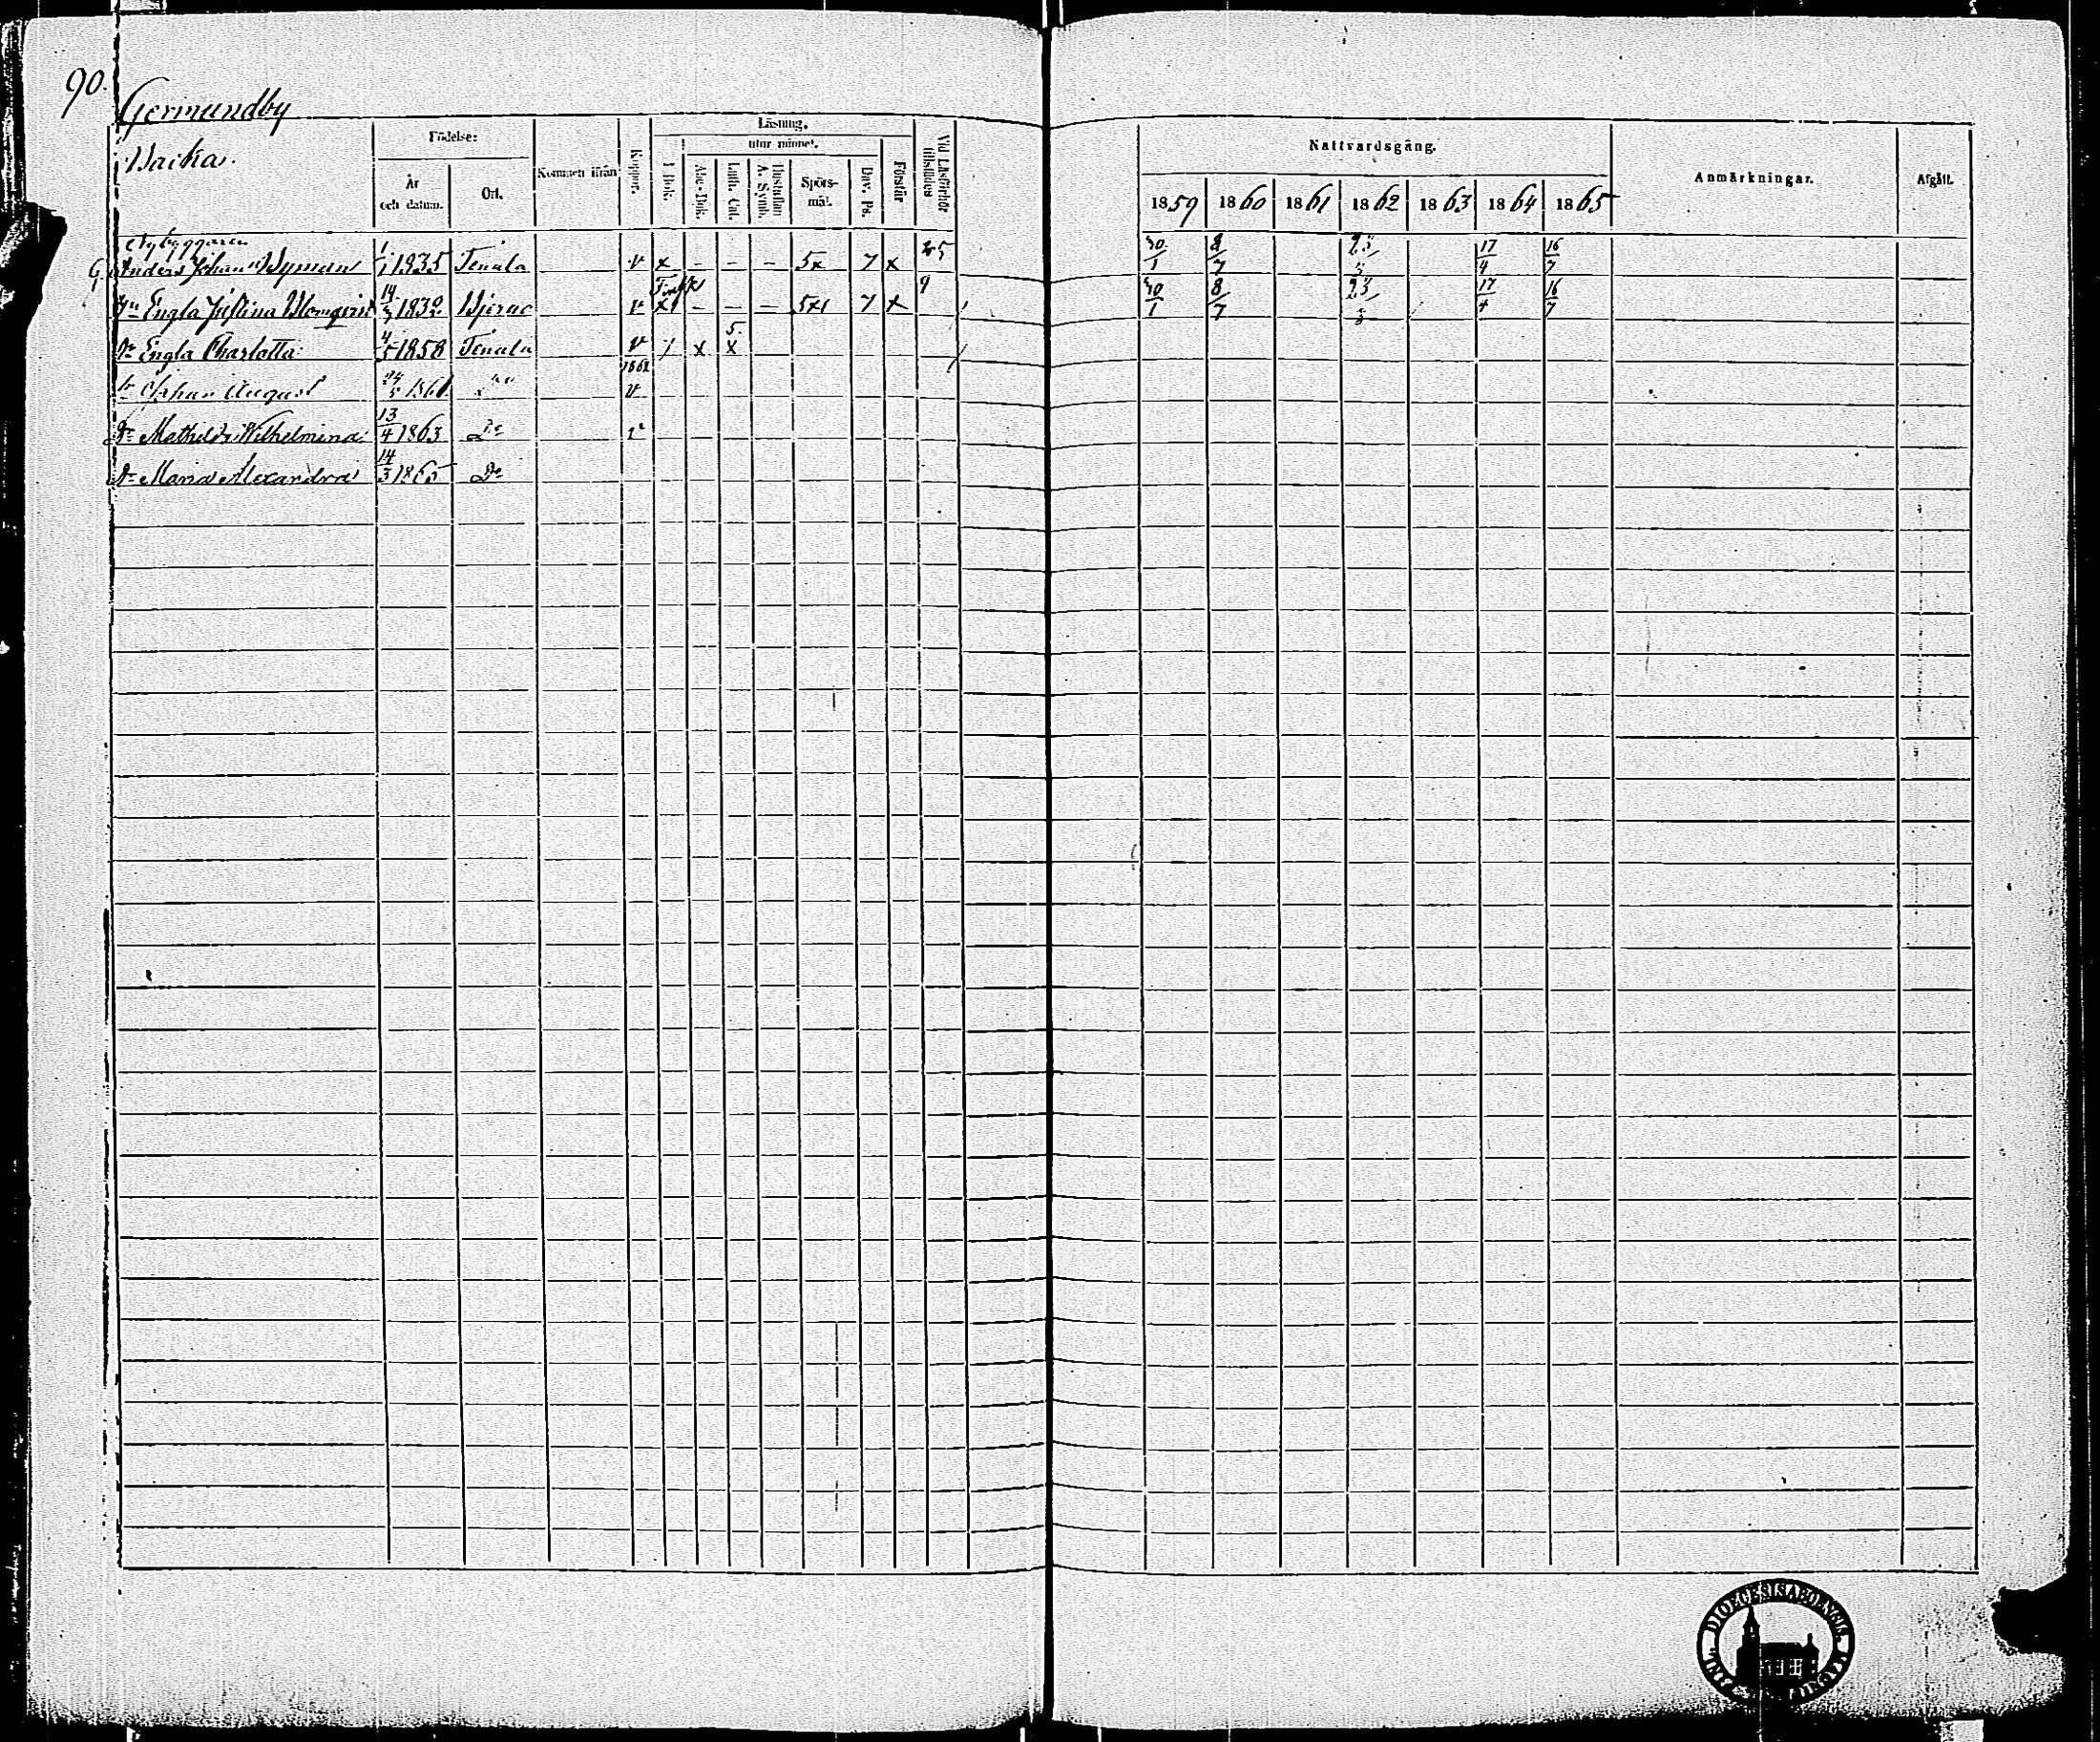 90.
Germundby
Backa.
Födelse:
År och datum.
Ort.
Kommen ifrån
Koppor.
Läsning,
utur minnet.
I Bok.
Abc-Bok.
Luth. Cat.
Hustaflan A. Symb.
Spörs-mål.
Dav. Ps.
Förstår
Vid Läsförhör tillstädes
Nattvardsgång.
1859 1860 1861 1862 1863 1864 1865
Anmärkningar.
Afgått.
Nybyggaren
Anders Johan Nyman 1/1 1835 Tenala v x – – – 5x 7 x 30/1 8/7 23/3 17/4 16/7
Hu Engla Justina Blomqvist 1832 Bjerno v x – – – 5x 7 x 9 30/1 8/7 23/3 17/4 16/7
Dr Engla Charlotta 4/5 1858 Tenala v x x 5.
1862
Sn Johan August 24/5 1861 Do v
Dr Mathilda Wilhelmina 13/4 1863 Do v
Dr Maria Alexandra 14/3 1865 Do
DIOECESIS ABOENSIS